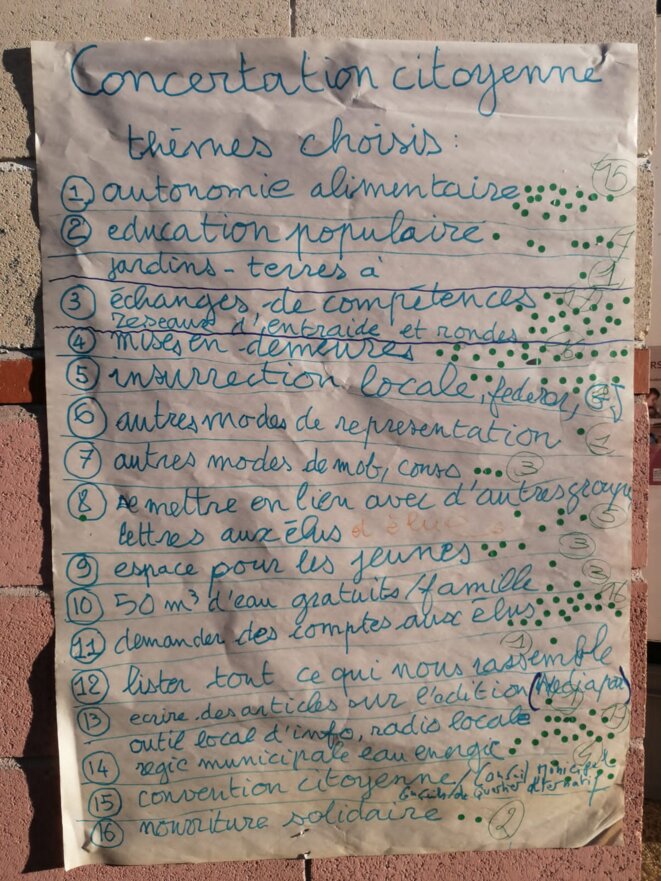 Concertation citoyenne
thèmes choisis :
1 autonomie alimentaire 15
2 education populaire 7
jardins - terres à 1
3 échanges de compétences
reseaux d'entraide et rondes
4 mises en demeures 16
5 insurrection locale, federer, GJ
6 autres modes de representation 1
7 autres modes de mob, conso 3
8 se mettre en lien avec d'autres groupes
lettres aux élus 5
9 espace pour les jeunes 3
10 50 m³ d'eau gratuits/famille
11 demander des comptes aux élus 16
12 lister tout ce qui nous rassemble 1
13 ecrire des articles sur l'edition (Mediapart)
outil local d'info, radio locale
14 regie municipale eau energie
15 convention citoyenne / Conseil Municipal
Conseils de Quartier alternatif
16 nourriture solidaire 2